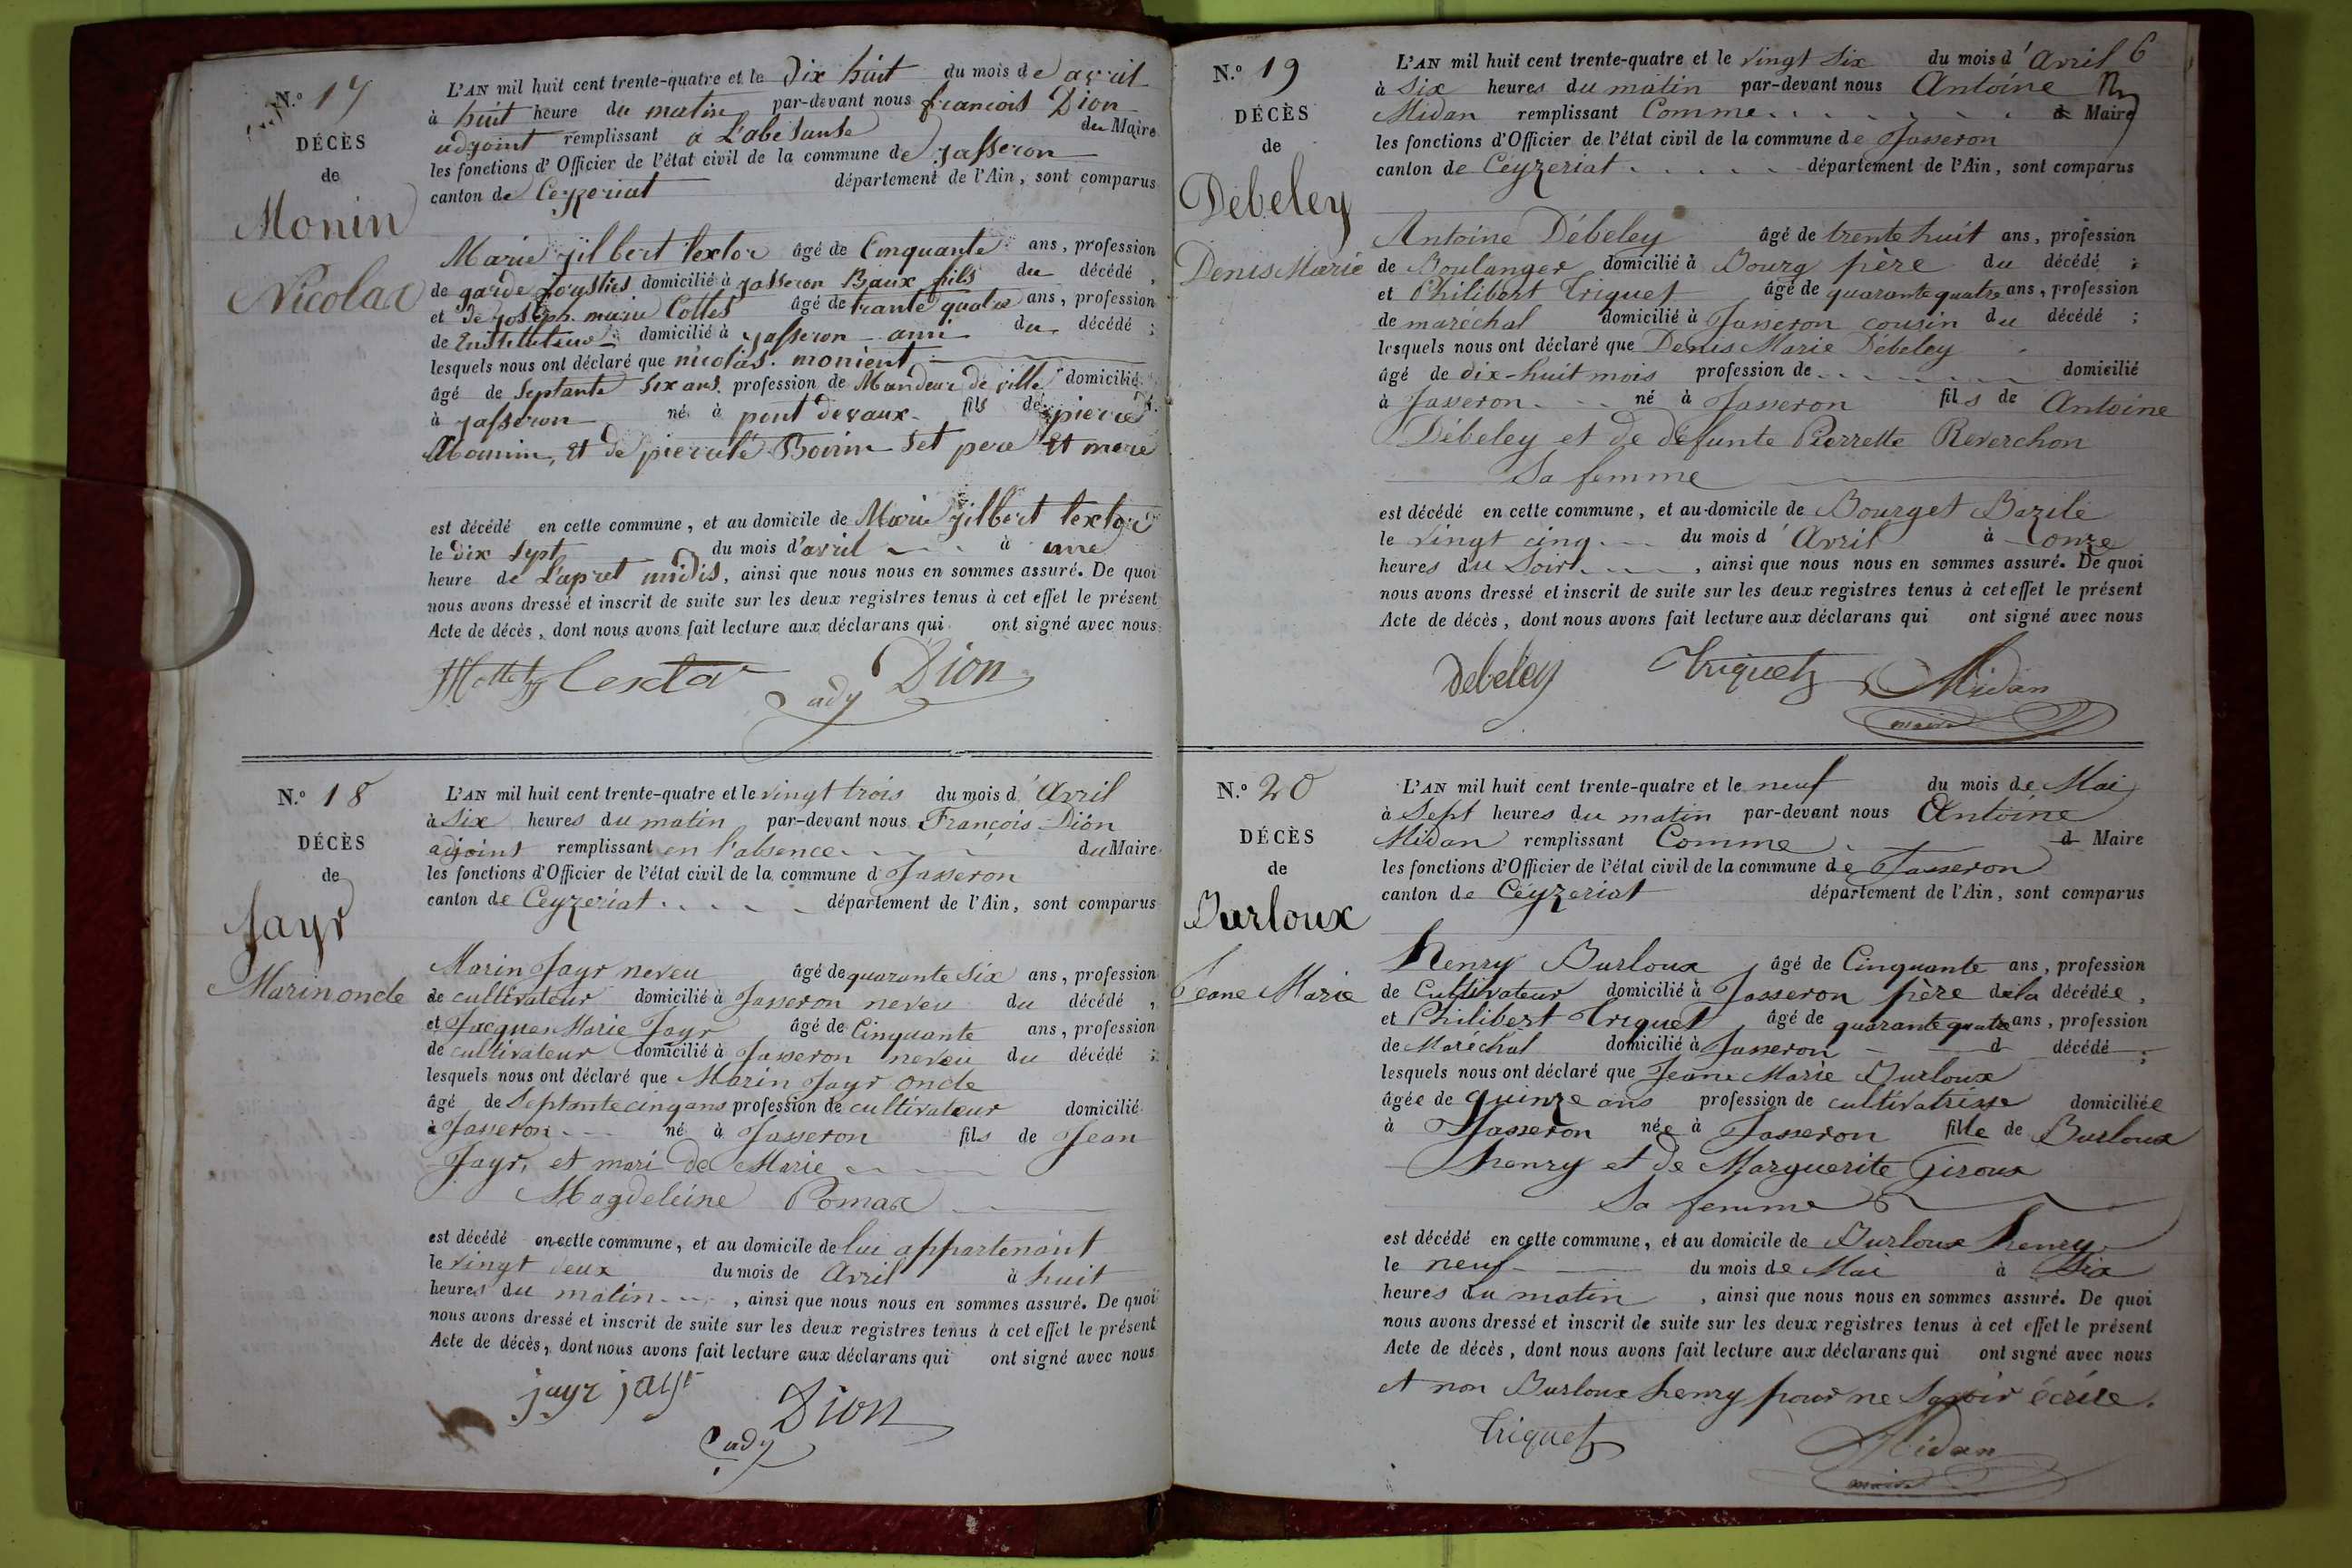 N.º 17
DÉCÈS
de
Monin
Nicolas
L'AN mil huit cent trente-quatre et le Dix huit du mois de avril
à huit heure du matin par-devant nous francois Dion
adjoint remplissant a L'abesanse du Maire
les fonctions d'Officier de l'état civil de la commune de jasseron
canton de Ceyzeriat département de l'Ain, sont comparus
Marie jilbert textor âgé de Cinquante ans, profession
de garde domicilié à jasseron Baux fils du décédé,
et de joseph marie Collet âgé de trante quatre ans, profession
de Instituteur domicilié à jasseron ami du décédé ;
lesquels nous ont déclaré que nicolas monient
âgé de Septante Six ans profession de Mandeur de ville domicilié
à jasseron né à pont devaux fils de pierre
Monnin, et de pierrete Boivin Set pere Et mere
est décédé en cette commune, et au domicile de Marie jilbert textor
le dix Sept du mois d'avril à une
heure de L'apret midis, ainsi que nous nous en sommes assuré. De quoi
nous avons dressé et inscrit de suite sur les deux registres tenus à cet effet le présent
Acte de décès, dont nous avons fait lecture aux déclarans qui ont signé avec nous
Textor
Dion
adj
N.º 18
DÉCÈS
de
Jayr
Marin oncle
L'AN mil huit cent trente-quatre et le vingt trois du mois d'Avril
à Six heures du matin par-devant nous François Dion
adjoint remplissant en l'absence du Maire
les fonctions d'Officier de l'état civil de la commune d Jasseron
canton de Ceyzeriat département de l'Ain, sont comparus
Marin Jayr neveu âgé de quarante Six ans, profession
de cultivateur domicilié à Jasseron neveu du décédé,
et Jacques Marie Jayr âgé de Cinquante ans, profession
de cultivateur domicilié à Jasseron neveu du décédé ;
lesquels nous ont déclaré que Marin Jayr oncle
âgé de Septante cinq ans profession de cultivateur domicilié
à Jasseron né à Jasseron fils de Jean
Jayr, et mari de Marie
Magdeleine Romax
est décédé en cette commune, et au domicile de lui appartenant
le vingt deux du mois de Avril à huit
heures du matin, ainsi que nous nous en sommes assuré. De quoi
nous avons dressé et inscrit de suite sur les deux registres tenus à cet effet le présent
Acte de décès, dont nous avons fait lecture aux déclarans qui ont signé avec nous
jayr jayr
Dion
adj
6
N.º 19
DÉCÈS
de
Débeley
Denis Marie
L'AN mil huit cent trente-quatre et le vingt Six du mois d'Avril
à Six heures du matin par-devant nous Antoine
Midan remplissant Comme d Maire
les fonctions d'Officier de l'état civil de la commune de Jasseron
canton de Ceyzeriat département de l'Ain, sont comparus
Antoine Débeley âgé de trente huit ans, profession
de Boulanger domicilié à Bourg père du décédé ;
et Philibert Triquet âgé de quarante quatre ans, profession
de maréchal domicilié à Jasseron cousin du décédé ;
lesquels nous ont déclaré que Denis Marie Débeley
âgé de dix-huit mois profession de domicilié
à Jasseron né à Jasseron fils de Antoine
Débeley et de défunte Pierrette Reverchon
Sa femme
est décédé en cette commune, et au domicile de Bourget Bazile
le vingt cinq du mois d'Avril à onze
heures du Soir, ainsi que nous nous en sommes assuré. De quoi
nous avons dressé et inscrit de suite sur les deux registres tenus à cet effet le présent
Acte de décès, dont nous avons fait lecture aux déclarans qui ont signé avec nous
Debeley Triquet Midan
maire
N.º 20
DÉCÈS
de
Burloux
Jeane Marie
L'AN mil huit cent trente-quatre et le neuf du mois de Mai
à Sept heures du matin par-devant nous Antoine
Midan remplissant Comme d Maire
les fonctions d'Officier de l'état civil de la commune de Jasseron
canton de Ceyzeriat département de l'Ain, sont comparus
henry Burloux âgé de Cinquante ans, profession
de Cultivateur domicilié à Jasseron père de la décédée,
et Philibert Triquet âgé de quarante quatre ans, profession
de Maréchal domicilié à Jasseron d décédé ;
lesquels nous ont déclaré que Jeane Marie Burloux
âgée de quinze ans profession de cultivatrisse domiciliée
à Jasseron née à Jasseron fille de Burloux
henry et de Marguerite Giroux
Sa femme
est décédé en cette commune, et au domicile de Burloux henry
le neuf du mois de Mai à Six
heures du matin, ainsi que nous nous en sommes assuré. De quoi
nous avons dressé et inscrit de suite sur les deux registres tenus à cet effet le présent
Acte de décès, dont nous avons fait lecture aux déclarans qui ont signé avec nous
et non Burloux henry pour ne Savoir écrire.
Triquet Midan
maire